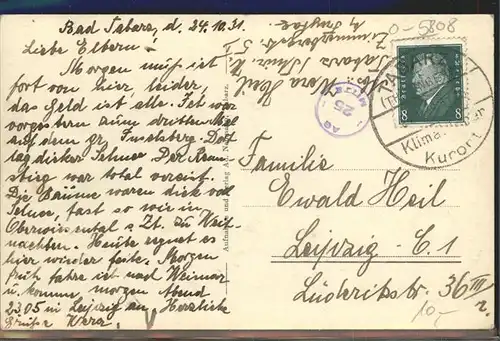 Bad Tabarz, d. 24.10.31.
Liebe Eltern!
Morgen muß ich
fort von hier, leider,
das Geld ist alle. Ich war
vorgestern zum dritten Mal
auf dem gr. Inselsberg. Dort
lag dicker Schnee. Der Renn-
stieg war total vereist.
Die Bäume waren dick voll
Schnee, fast so wie in
Oberwiesental z. Zt. zu Weih-
nachten. Heute regnet es
hier wieder feste. Morgen
früh fahre ich nach Weimar
u. komme morgen Abend
23.05 in Leipzig an. Herzliche
Grüße Vera.
Vera Heil
Tabarz Thür. W.
0-5808
TABARZ
Klima
Kurort
8 8
25
Familie
Ewald Heil
Leipzig - C. 1
Lüderitzstr. 36 III
r.
10,-